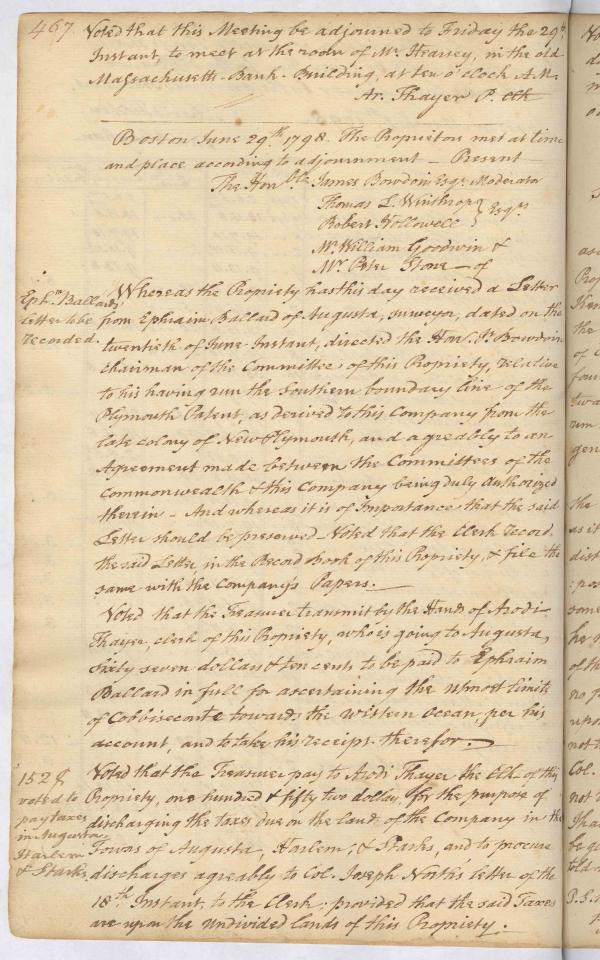 467. Voted that this Meeting be adjourned to Friday the 29th
Instant, to meet at the room of Mr. Hearsey, in the old
Massachusetts-Bank-Building, at ten o'clock A.M.
Ar. Thayer P. Clk
Boston June 29th. 1798. The Proprietors met at time
and place according to adjournment — Present
The Honble. James Bowdoin Esqr. Moderator
Thomas L. Winthrop } Esqrs
Robert Hollowell
Mr. William Goodwin &
Mr. Peter Stone — of
Ephm. Ballard's
letter to be
recorded.
Whereas the Propriety has this day received a Letter
from Ephraim Ballard of Augusta, surveyor, dated on the
twentieth of June Instant, directed the Hon. Js. Bowdoin
chairman of the Committee of this Propriety, relative
to his having run the Southern boundary line of the
Plymouth Patent, as derived to this Company from the
late colony of New Plymouth, and agreably to an
Agreement made between the Committees of the
Commonwealth & this Company being duly Authorized
therein — And whereas it is of Importance that the said
Letter should be preserved — Voted that the Clerk record
the said Letter, in the Record Book of this Propriety, & file the
same with the Company's Papers. —
Voted that the Treasurer transmit by the Hands of Arodi
Thayer, clerk of this Propriety, who is going to Augusta,
sixty seven dollars & ten cents to be paid to Ephraim
Ballard in full for ascertaining the utmost limits
of Cobbiseconte towards the Western Ocean, per his
account, and to take his receipt therefor. —
152 $
voted to
pay taxes
in Augusta
Harlem
& Starks.
Voted that the Treasurer pay to Arodi Thayer the Clk. of this
Propriety, one hundred & fifty two dollars, for the purpose of
discharging the taxes due on the land of the Company in the
Towns of Augusta, Harlem, & Starks, and to procure
discharges agreably to Col. Joseph North's letter of the
18th Instant, to the Clerk; provided that the said Taxes
are upon the undivided lands of this Propriety.